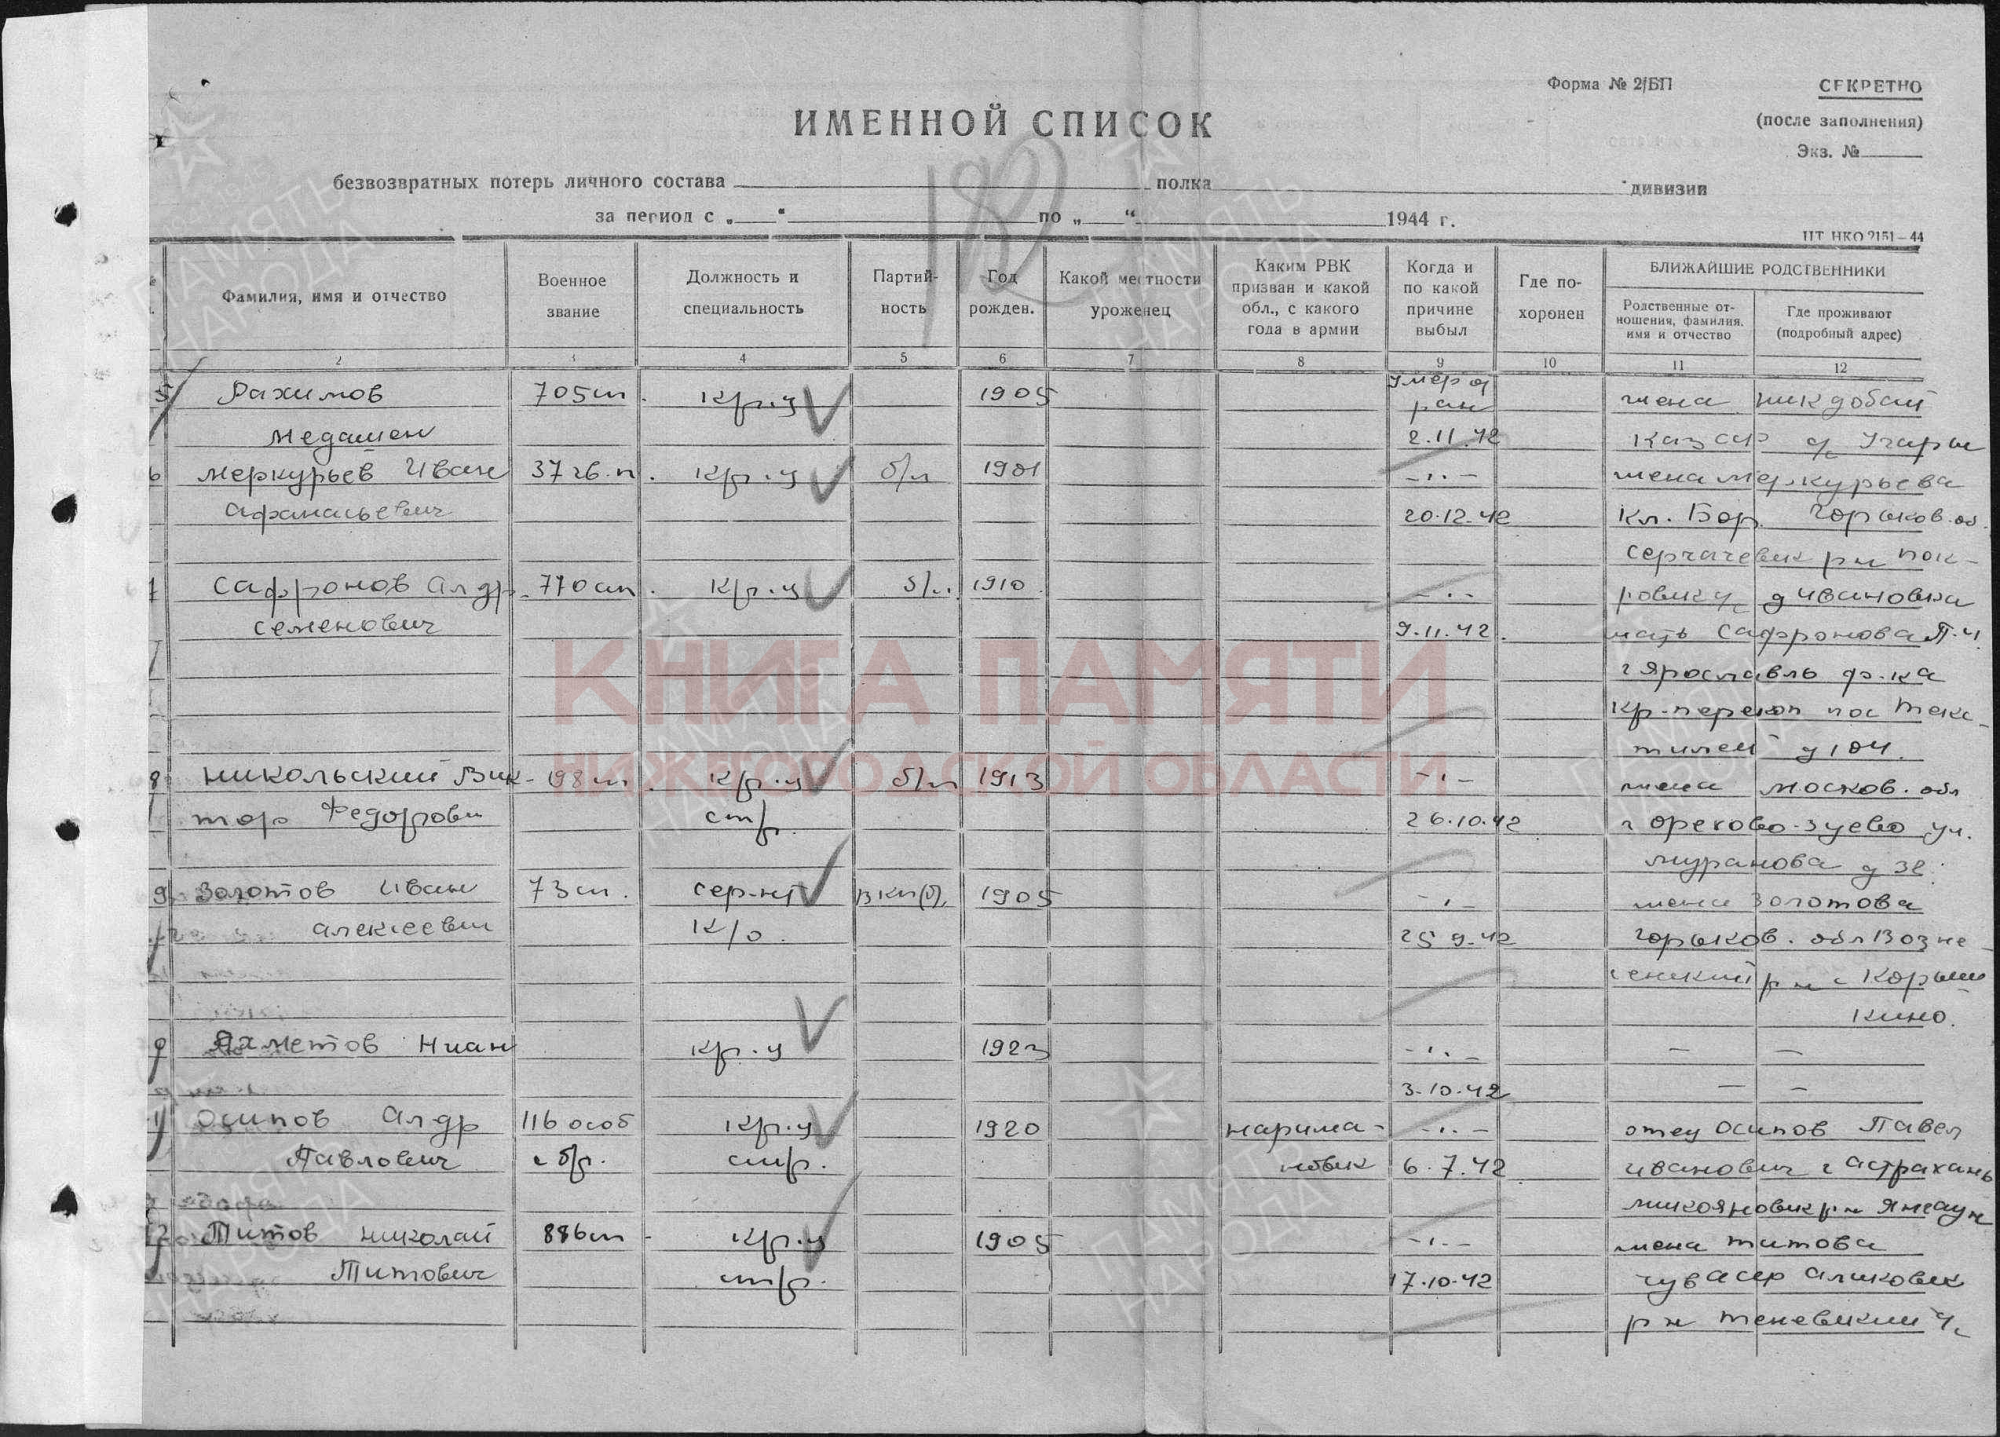 Форма № 2/БП
СЕКРЕТНО
(после заполнения)
Экз. №
ИМЕННОЙ СПИСОК
182
безвозвратных потерь личного состава полка дивизии
за период с „ “ по „ “ 1944 г.
ЦТ НКО 2151–44
Фамилия, имя и отчество
Военное звание
Должность и специальность
Партий-
ность
Год рожден.
Какой местности уроженец
Каким РВК призван и какой обл., с какого года в армии
Когда и по какой причине выбыл
Где по-
хоронен
БЛИЖАЙШИЕ РОДСТВЕННИКИ
Родственные от-
ношения, фамилия, имя и отчество
Где проживают (подробный адрес)
2 3 4 5 6 7 8 9 10 11 12
5 Рахимов 705 сп. кр-ц 1905 умер от ран жена
Медашен 2.11.42 Каз ССР
6 Меркурьев Иван 37 гв.п. кр-ц б/п 1901 -"- жена Меркурьева
Афанасьевич 20.12.42 Кл. Бор. Горьков. об.
р-н Пок-
7 Сафронов Алдр. 770 сп. кр-ц б/п. 1910 -"- д Ивановка
Семенович 9.11.42. мать Сафронова П.И.
г Ярославль ф-ка
Кр-перекоп пос Текс-
тилей д 104.
8 Никольский Вик- 198 сп. кр-ц б/п 1913 -"- жена москов. обл
тор Федорович стр. 26.10.42 г Орехово-Зуево ул.
Муранова д 32.
9 Золотов Иван 73 сп. сер-нт ВКП(б). 1905 -"- жена Золотова
Алексеевич к/о. 25.9.42 Горьков. обл Возне-
сенский р-н с Корыш
кино.
Ахметов Ниан кр-ц 1923 -"- — —
3.10.42 — —
11 Осипов Алдр 116 особ кр-ц 1920 нарима- -"- отец Осипов Павел
Павлович сбр. стр. новск 6.7.42 Иванович г Астрахань
12 Титов Николай 886 сп - кр-ц 1905 -"- жена Титова
Титович стр. 17.10.42 Чув АССР Аликовск
р-н
КНИГА ПАМЯТИ
НИЖЕГОРОДСКОЙ ОБЛАСТИ
ПАМЯТЬ НАРОДА